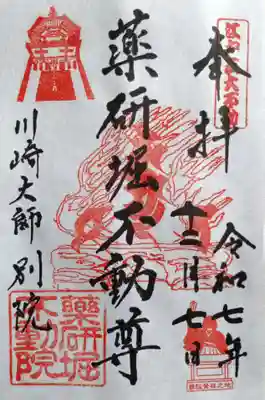 奉拝
令和七年
十二月七日
薬研堀不動尊
川崎大師別院
薬研堀
不動院